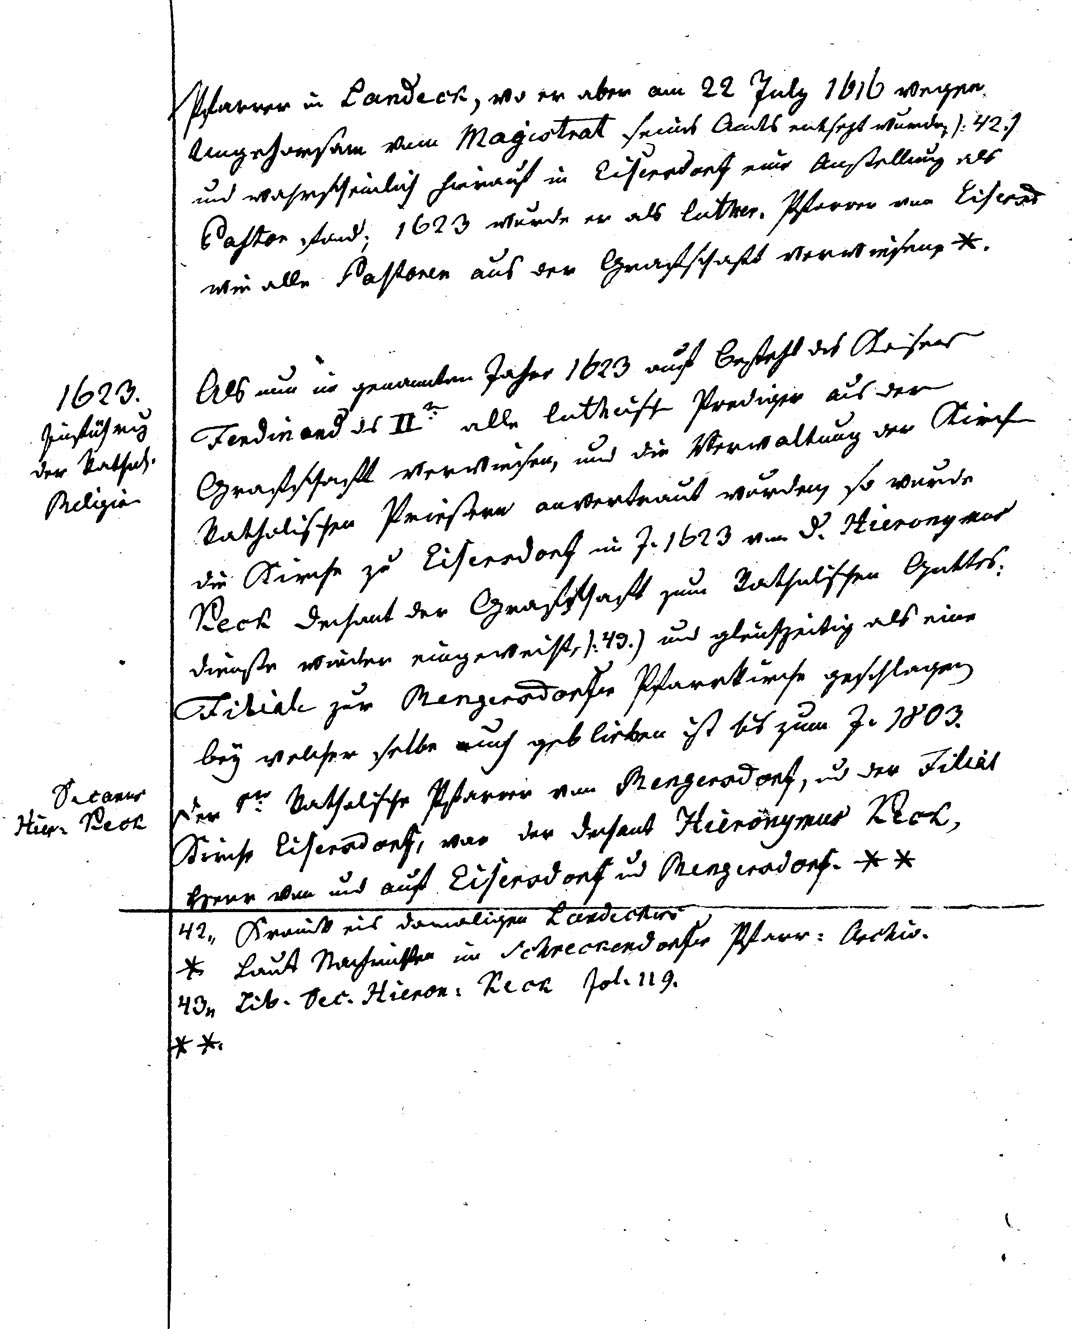 Pfarrer in Landeck, wo er aber am 22 July 1616 wegen
Ungehorsam vom Magistrat seines Amts entsetzt wurde, /: 42. /
und wahrscheinlich hierauf in Eisersdorf eine Anstellung als
Pastor fand; 1623 wurde er als luther. Pfarrer von Eisersd
wie alle Pastoren aus der Grafschaft verwiesen *.
1623.
Einführung
der Kathol.
Religion
Als nun im genannten Jahre 1623 auf Befehl des Kaisers
Ferdinand des II alle luthrisch Prediger aus der
Grafschaft verwiesen, und die Verwaltung der Kirch
Katholischen Priestern anvertraut wurden, so wurde
die Kirche zu Eisersdorf im J. 1623 von D. Hieronymus
Keck Dechant der Grafschaft zum Katholischen Gottes:
dienste wieder eingeweiht, /: 43. / und gleichzeitig als eine
Filiale zur Rengersdorfer Pfarrkirche geschlagen
bey welcher selbe auch geblieben ist bis zum J. 1803.
Decanus
Hier: Keck
Der Katholische Pfarrer von Rengersdorf, und der Filial
Kirche Eisersdorf, war der Dechant Hieronymus Keck,
Herr von und auf Eisersdorf und Rengersdorf. * *
42,, Kronik des damaligen Landeckers
* Laut Nachrichten im Schreckendorfer Pfarr: Archiv.
43,, Lib. Dec. Hieron: Keck fol. 119.
* *.